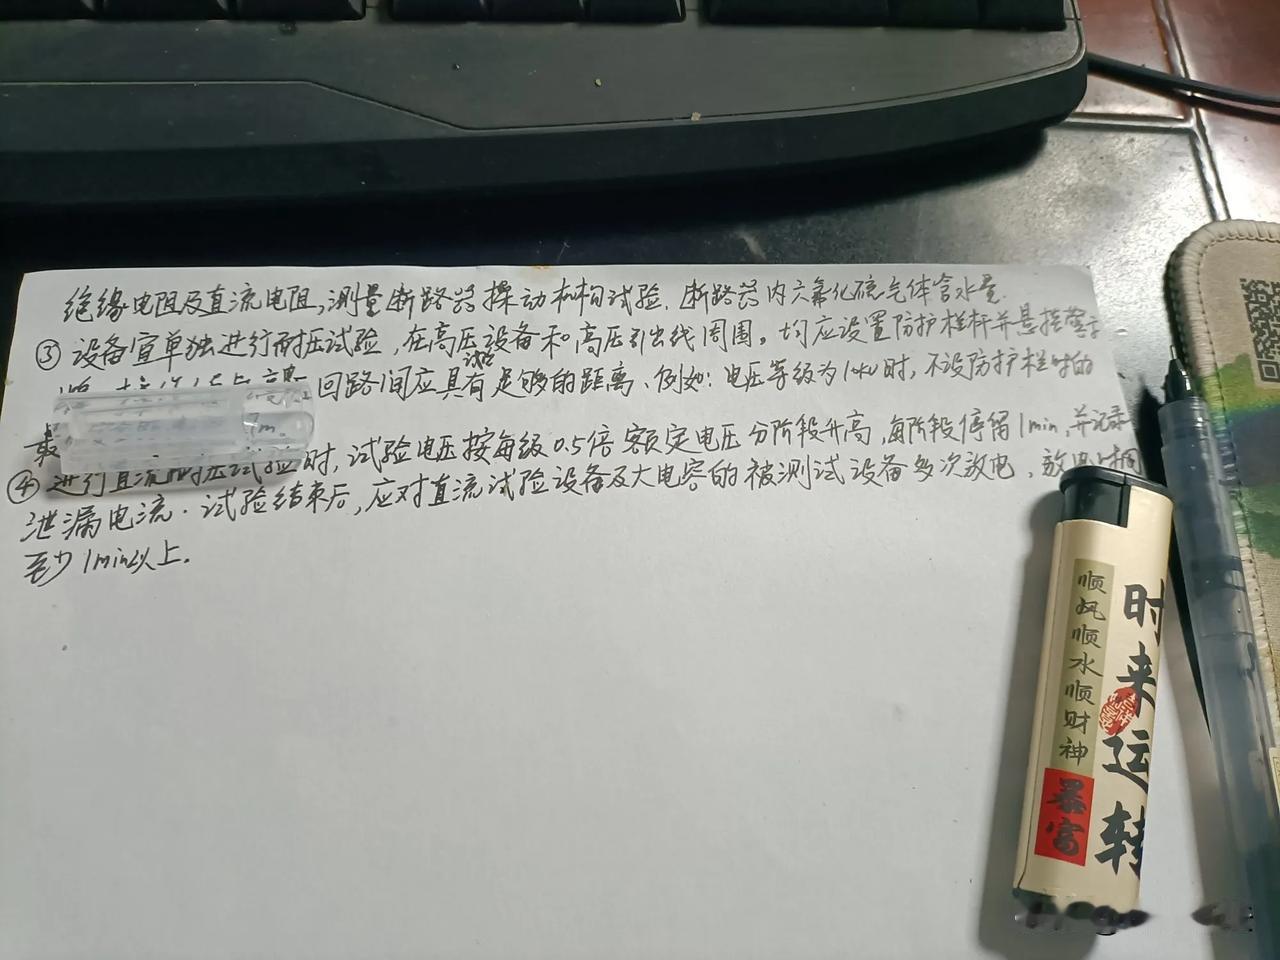 绝缘电阻及直流电阻,测量断路器操动机构试验.断路器内六氟化硫气体含水量.
③设备宜单独进行耐压试验,在高压设备和高压引出线周围。均应设置防护栏杆并悬挂警示
回路间应具有足够的距离、例如:电压等级为1kV时,不设防护栏时的
试验
最 1m。
④进行直流耐压试验时,试验电压按每级0.5倍额定电压分阶段升高,每阶段停留1min,并记录
泄漏电流.试验结束后,应对直流试验设备及大电容的被测试设备多次放电,放电时间
至少1min以上.
顺风顺水顺财神
暴富
时来运转